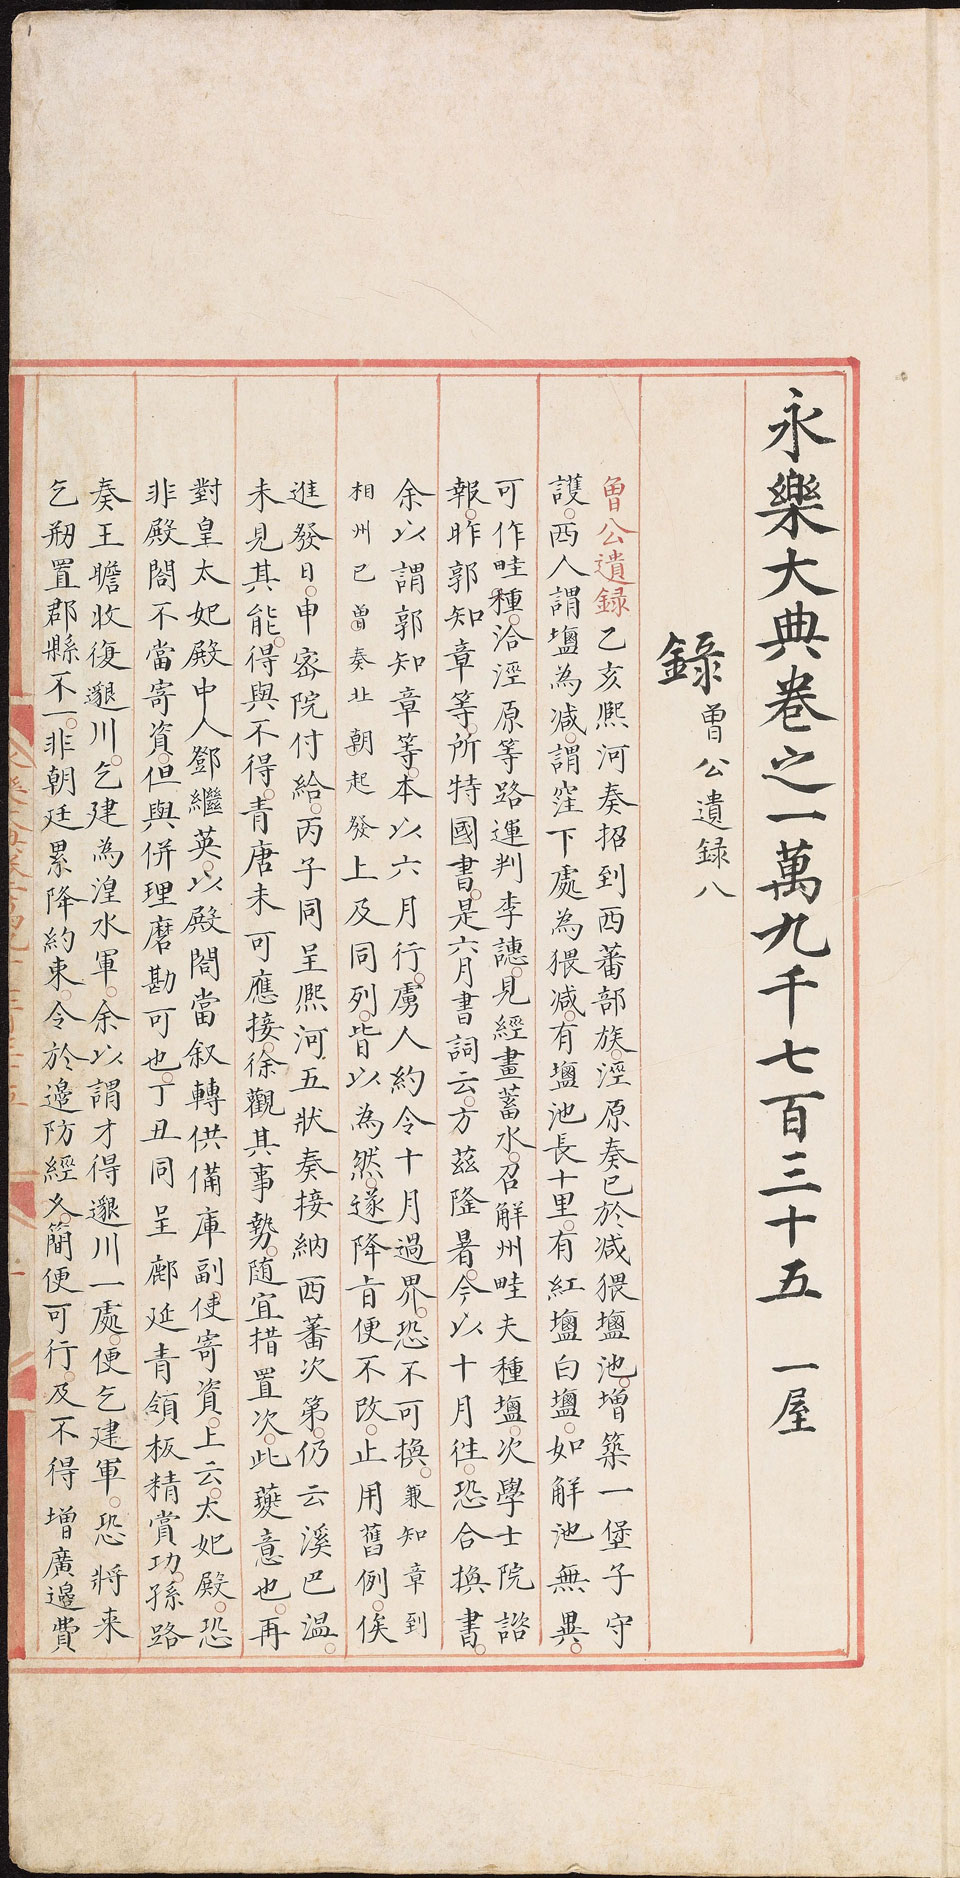 永樂大典卷之一萬九千七百三十五　一屋
錄　曾公遺録八
曾公遺録乙亥熈河奏招到西蕃部族。涇原奏已於减猥鹽池。增築一堡子守
護。西人謂鹽為减。謂窪下處為猥减。有鹽池長十里。有紅鹽白鹽。如解池無異。
可作畦種。洽涇原等路運判李譓。見經畫蓄水。召解州畦夫種鹽。次學士院諮
報。昨郭知章等。所特國書。是六月書詞云。方兹隆暑。今以十月往。恐合换書。
余以謂郭知章等。本以六月行。虜人約令十月過界。恐不可换。兼知章到
相州已曾奏北朝起發上及同列。皆以為然。遂降㫖便不改。止用舊例。俟
進發日。申宻院付給。丙子同呈熈河五狀奏接納西蕃次第。仍云溪巴温。
未見其能。得與不得。青唐未可應接。徐觀其事勢。随宜措置次。此䕫意也。再
對皇太妃殿中人鄧繼英。以殿閤當叙轉供備庫副使寄資。上云。太妃殿。恐
非殿閤不當寄資。但與併理磨勘可也。丁丑同呈鄜延青領板精賞功。孫路
奏王瞻收復邈川。乞建為湟水軍。余以謂才得邈川一處。便乞建軍。恐將来
乞剏置郡縣不一。非朝廷累降約束。令於邊防經久。簡便可行。及不得增廣邊費